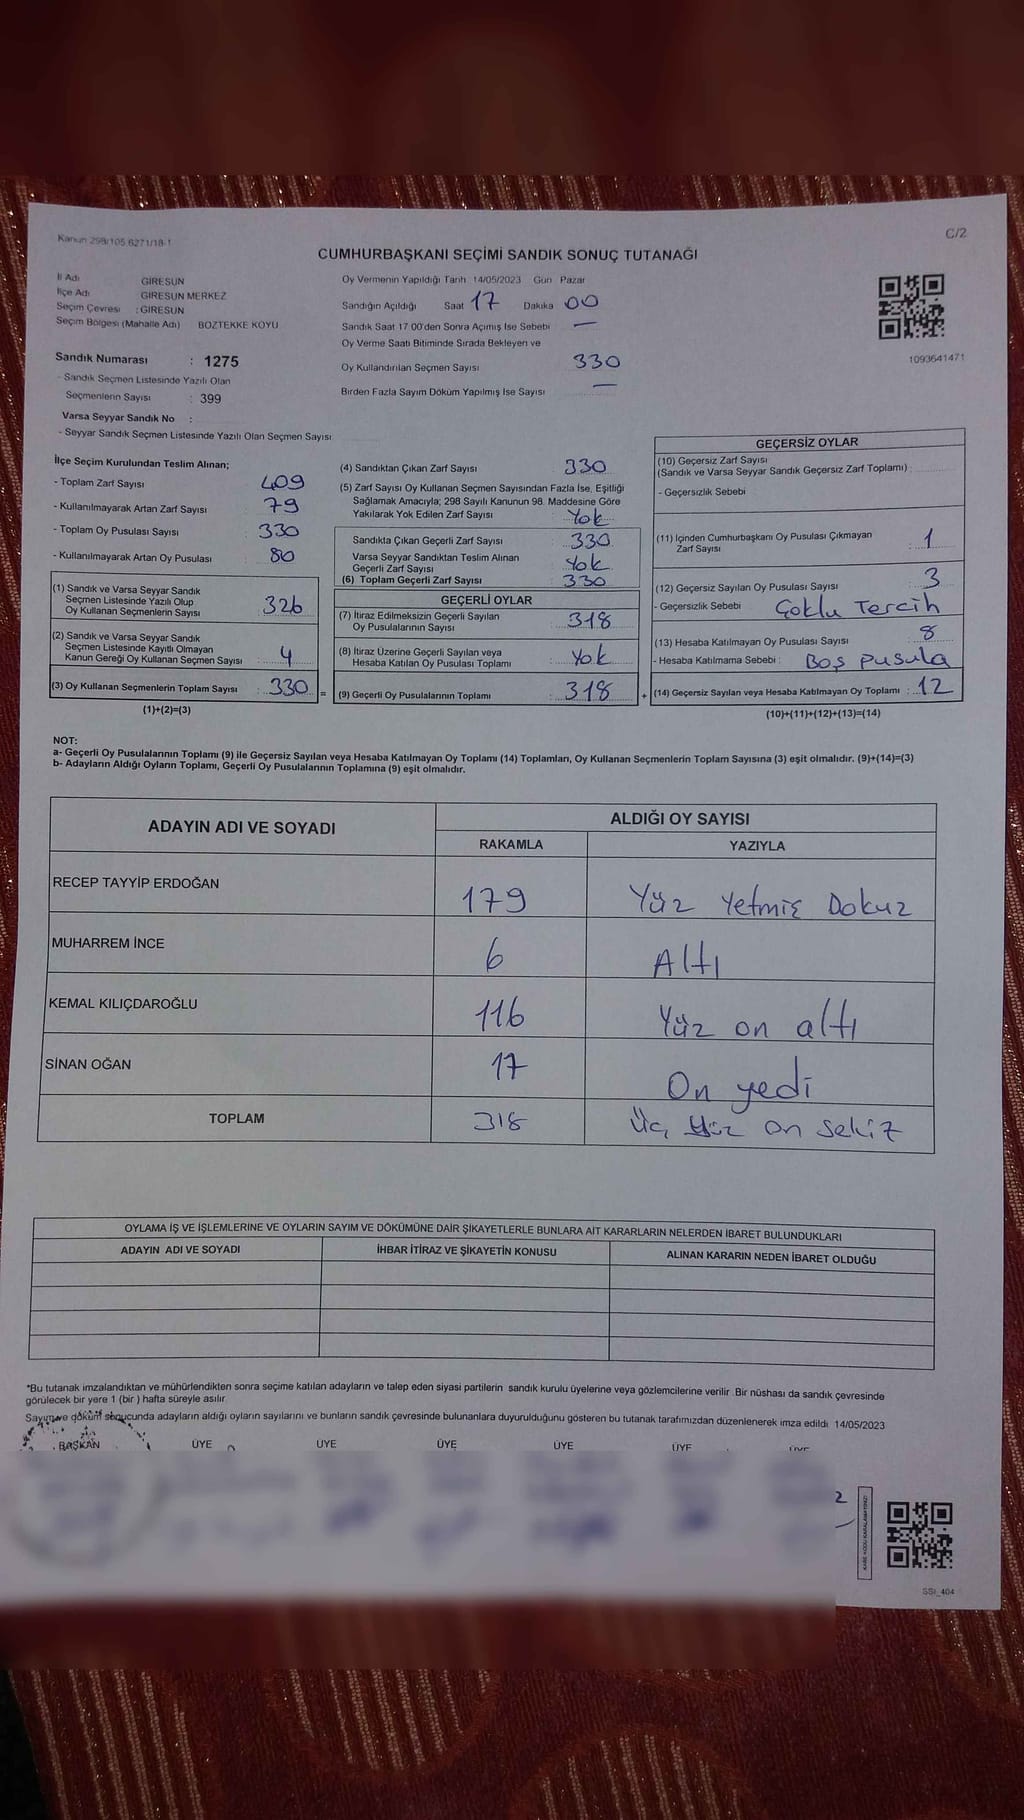 Kanun 298/105 6271/18-1
C/2
CUMHURBAŞKANI SEÇİMİ SANDIK SONUÇ TUTANAĞI
İl Adı GİRESUN
İlçe Adı GİRESUN MERKEZ
Seçim Çevresi : GİRESUN
Seçim Bölgesi (Mahalle Adı) BOZTEKKE KÖYÜ
Sandık Numarası : 1275
- Sandık Seçmen Listesinde Yazılı Olan
Seçmenlerin Sayısı : 399
Varsa Seyyar Sandık No :
- Seyyar Sandık Seçmen Listesinde Yazılı Olan Seçmen Sayısı
Oy Vermenin Yapıldığı Tarih 14/05/2023 Gün Pazar
Sandığın Açıldığı Saat 17 Dakika 00
Sandık Saat 17 00'den Sonra Açılmış İse Sebebi —
Oy Verme Saati Bitiminde Sırada Bekleyen ve
Oy Kullandırılan Seçmen Sayısı 330
Birden Fazla Sayım Döküm Yapılmış İse Sayısı —
1093641471
İlçe Seçim Kurulundan Teslim Alınan;
- Toplam Zarf Sayısı 409
- Kullanılmayarak Artan Zarf Sayısı 79
- Toplam Oy Pusulası Sayısı 330
- Kullanılmayarak Artan Oy Pusulası 80
(1) Sandık ve Varsa Seyyar Sandık
Seçmen Listesinde Yazılı Olup
Oy Kullanan Seçmenlerin Sayısı 326
(2) Sandık ve Varsa Seyyar Sandık
Seçmen Listesinde Kayıtlı Olmayan
Kanun Gereği Oy Kullanan Seçmen Sayısı 4
(3) Oy Kullanan Seçmenlerin Toplam Sayısı : 330 =
(1)+(2)=(3)
(4) Sandıktan Çıkan Zarf Sayısı 330
(5) Zarf Sayısı Oy Kullanan Seçmen Sayısından Fazla İse, Eşitliği
Sağlamak Amacıyla; 298 Sayılı Kanunun 98. Maddesine Göre
Yakılarak Yok Edilen Zarf Sayısı : Yok
Sandıkta Çıkan Geçerli Zarf Sayısı : 330
Varsa Seyyar Sandıktan Teslim Alınan
Geçerli Zarf Sayısı Yok
(6) Toplam Geçerli Zarf Sayısı 330
GEÇERLİ OYLAR
(7) İtiraz Edilmeksizin Geçerli Sayılan
Oy Pusulalarının Sayısı 318
(8) İtiraz Üzerine Geçerli Sayılan veya
Hesaba Katılan Oy Pusulası Toplamı Yok
(9) Geçerli Oy Pusulalarının Toplamı : 318 +
GEÇERSİZ OYLAR
(10) Geçersiz Zarf Sayısı
(Sandık ve Varsa Seyyar Sandık Geçersiz Zarf Toplamı) :
- Geçersizlik Sebebi
(11) İçinden Cumhurbaşkanı Oy Pusulası Çıkmayan
Zarf Sayısı : 1
(12) Geçersiz Sayılan Oy Pusulası Sayısı 3
- Geçersizlik Sebebi : Çoklu Tercih
(13) Hesaba Katılmayan Oy Pusulası Sayısı 8
- Hesaba Katılmama Sebebi : Boş Pusula
(14) Geçersiz Sayılan veya Hesaba Katılmayan Oy Toplamı : 12
(10)+(11)+(12)+(13)=(14)
NOT:
a- Geçerli Oy Pusulalarının Toplamı (9) ile Geçersiz Sayılan veya Hesaba Katılmayan Oy Toplamı (14) Toplamları, Oy Kullanan Seçmenlerin Toplam Sayısına (3) eşit olmalıdır. (9)+(14)=(3)
b- Adayların Aldığı Oyların Toplamı, Geçerli Oy Pusulalarının Toplamına (9) eşit olmalıdır.
ADAYIN ADI VE SOYADI
ALDIĞI OY SAYISI
RAKAMLA YAZIYLA
RECEP TAYYİP ERDOĞAN 179 Yüz Yetmiş Dokuz
MUHARREM İNCE 6 Altı
KEMAL KILIÇDAROĞLU 116 Yüz on altı
SİNAN OĞAN 17 On yedi
TOPLAM 318 Üç Yüz on sekiz
OYLAMA İŞ VE İŞLEMLERİNE VE OYLARIN SAYIM VE DÖKÜMÜNE DAİR ŞİKAYETLERLE BUNLARA AİT KARARLARIN NELERDEN İBARET BULUNDUKLARI
ADAYIN ADI VE SOYADI İHBAR İTİRAZ VE ŞİKAYETİN KONUSU ALINAN KARARIN NEDEN İBARET OLDUĞU
*Bu tutanak imzalandıktan ve mühürlendikten sonra seçime katılan adayların ve talep eden siyasi partilerin sandık kurulu üyelerine veya gözlemcilerine verilir. Bir nüshası da sandık çevresinde
görülecek bir yere 1 (bir) hafta süreyle asılır
Sayım ve döküm sonucunda adayların aldığı oyların sayılarını ve bunların sandık çevresinde bulunanlara duyurulduğunu gösteren bu tutanak tarafımızdan düzenlenerek imza edildi 14/05/2023
BAŞKAN ÜYE ÜYE ÜYE ÜYE ÜYE ÜYE
KARE KODU KARALAMAYINIZ!
SSI_404